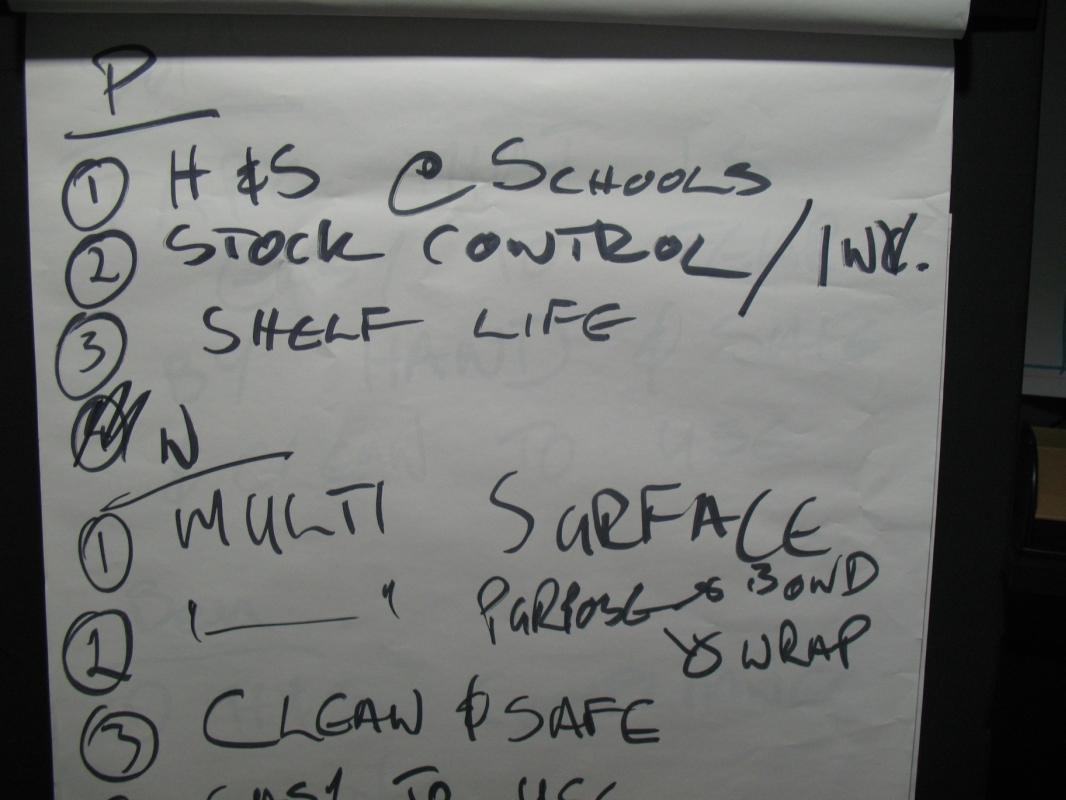 P
① H & S @ SCHOOLS
② STOCK CONTROL / INV.
③ SHELF LIFE
N
① MULTI SURFACE
② "———" PURPOSE → BOND
↘ WRAP
③ CLEAN & SAFE
EASY TO USE